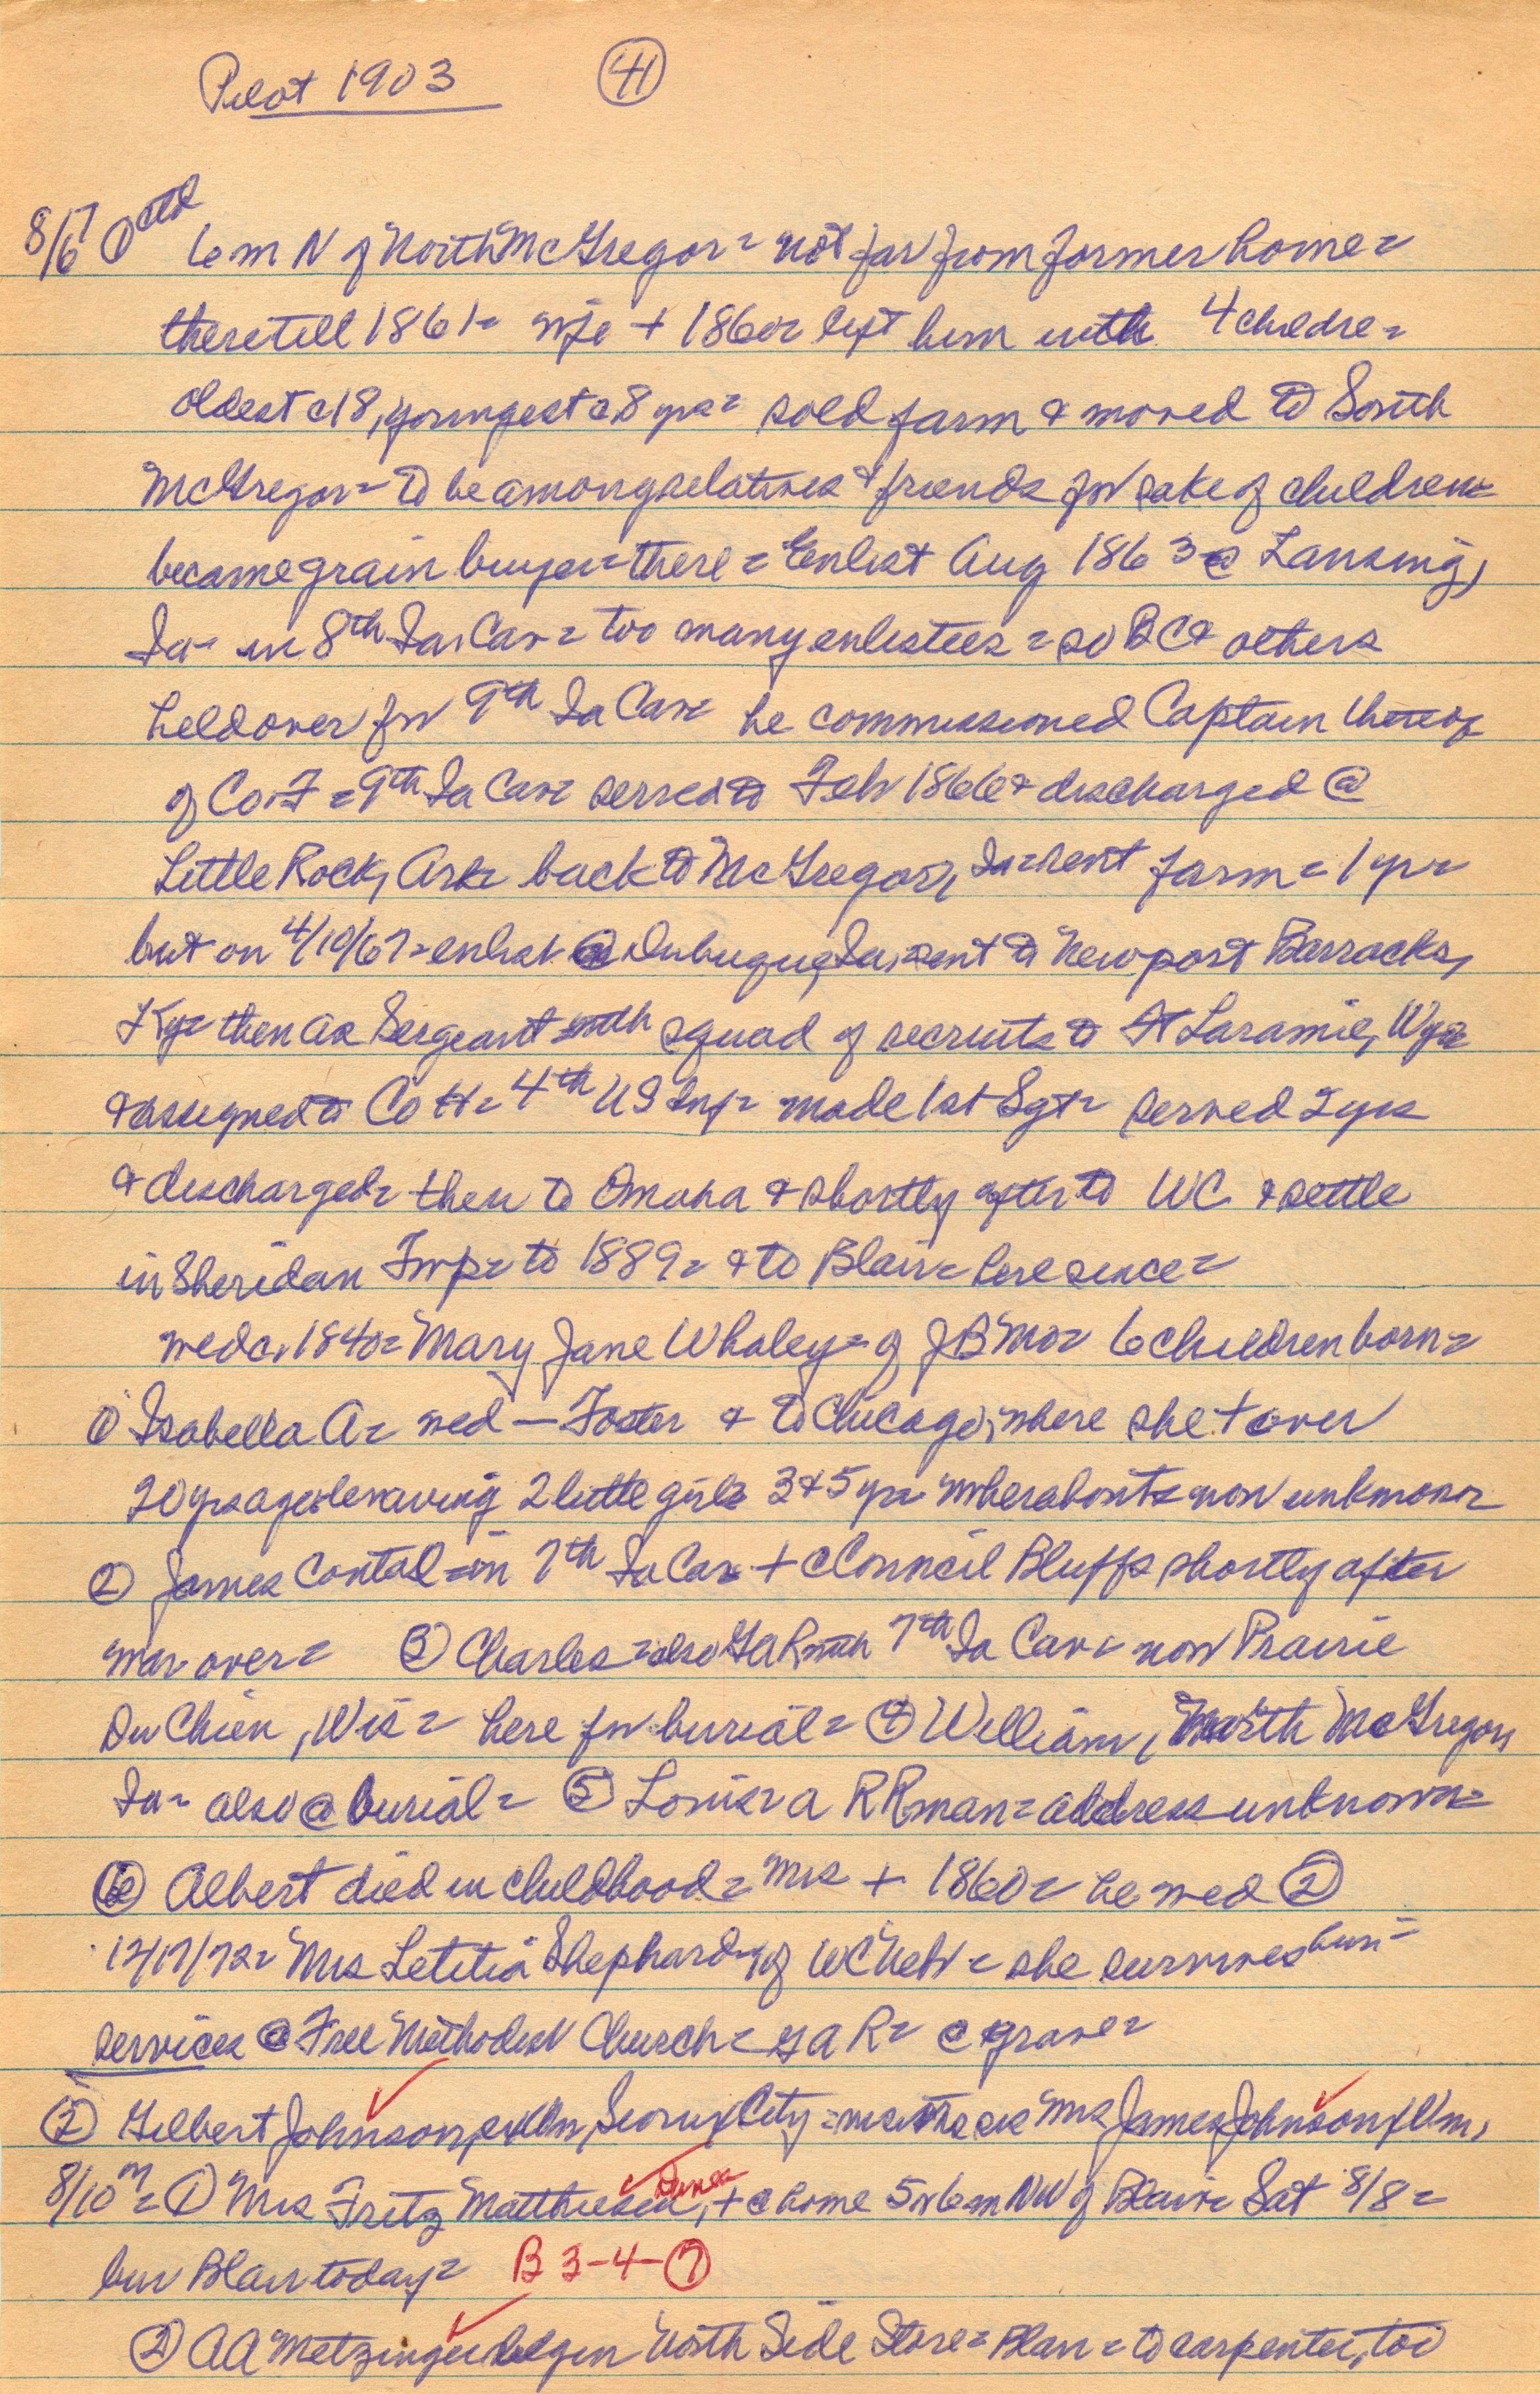 Pilot 1903 41
8/6 ① ctd 6 m N of North McGregor = not far from former home =
there till 1861 = wife + 1860 = left him with 4 childre =
oldest c 18, youngest c 8 yrs = sold farm & moved to South
McGregor = to be among relatives & friends for sake of children =
became grain buyer = there = Enlist Aug 1863 @ Lansing,
Ia = in 8th Ia Cav = too many enlistees = so BC & others
held over for 9th Ia Cav = he commissioned Captain thereof
of Co F = 9th Ia Cav = served to Feb 1866 & discharged @
Little Rock, Ark = back to McGregor, Ia = rent farm = 1 yr =
but on 4/10/67 = enlist @ Dubuque, Ia, sent to Newport Barracks,
Ky = then as Sergeant with squad of recruits to Ft Laramie, Wyo =
& assigned to Co H = 4th US Inf = made 1st Sgt = served 2 yrs
& discharged = then to Omaha & shortly after to WC & settle
in Sheridan Twp = to 1889 = & to Blair = here since =
wed c. 1840 = Mary Jane Whaley = of JB Mo = 6 children born =
① Isabella A = wed — Foster & to Chicago, where she + over
20 yrs ago = leaving 2 little girls 3 & 5 yrs = whereabouts now unknown
② James Contal = in 7th Ia Cav + c Council Bluffs shortly after
war over = ③ Charles = also GAR with 7th Ia Cav = now Prairie
Du Chien, Wis = here for burial = ④ William, North McGregor,
Ia = also @ burial = ⑤ Louis = a RR man = address unknown =
⑥ Albert died in childhood = Mrs + 1860 = he wed ②
12/17/72 = Mrs Letitia Shephard = of WC Neb = she survives him =
services @ Free Methodist Church = GAR = c grave =
② Gilbert Johnson, Sioux City = Mrs James Johnson,
8/10 M = ① Mrs Fritz Matthiesen, + c home 5 or 6 m NW of Blair = Sat 8/8 =
bur Blair today = B 3-4-⑦
② AA Metzinger North Side Store = Blair = to carpenter, too